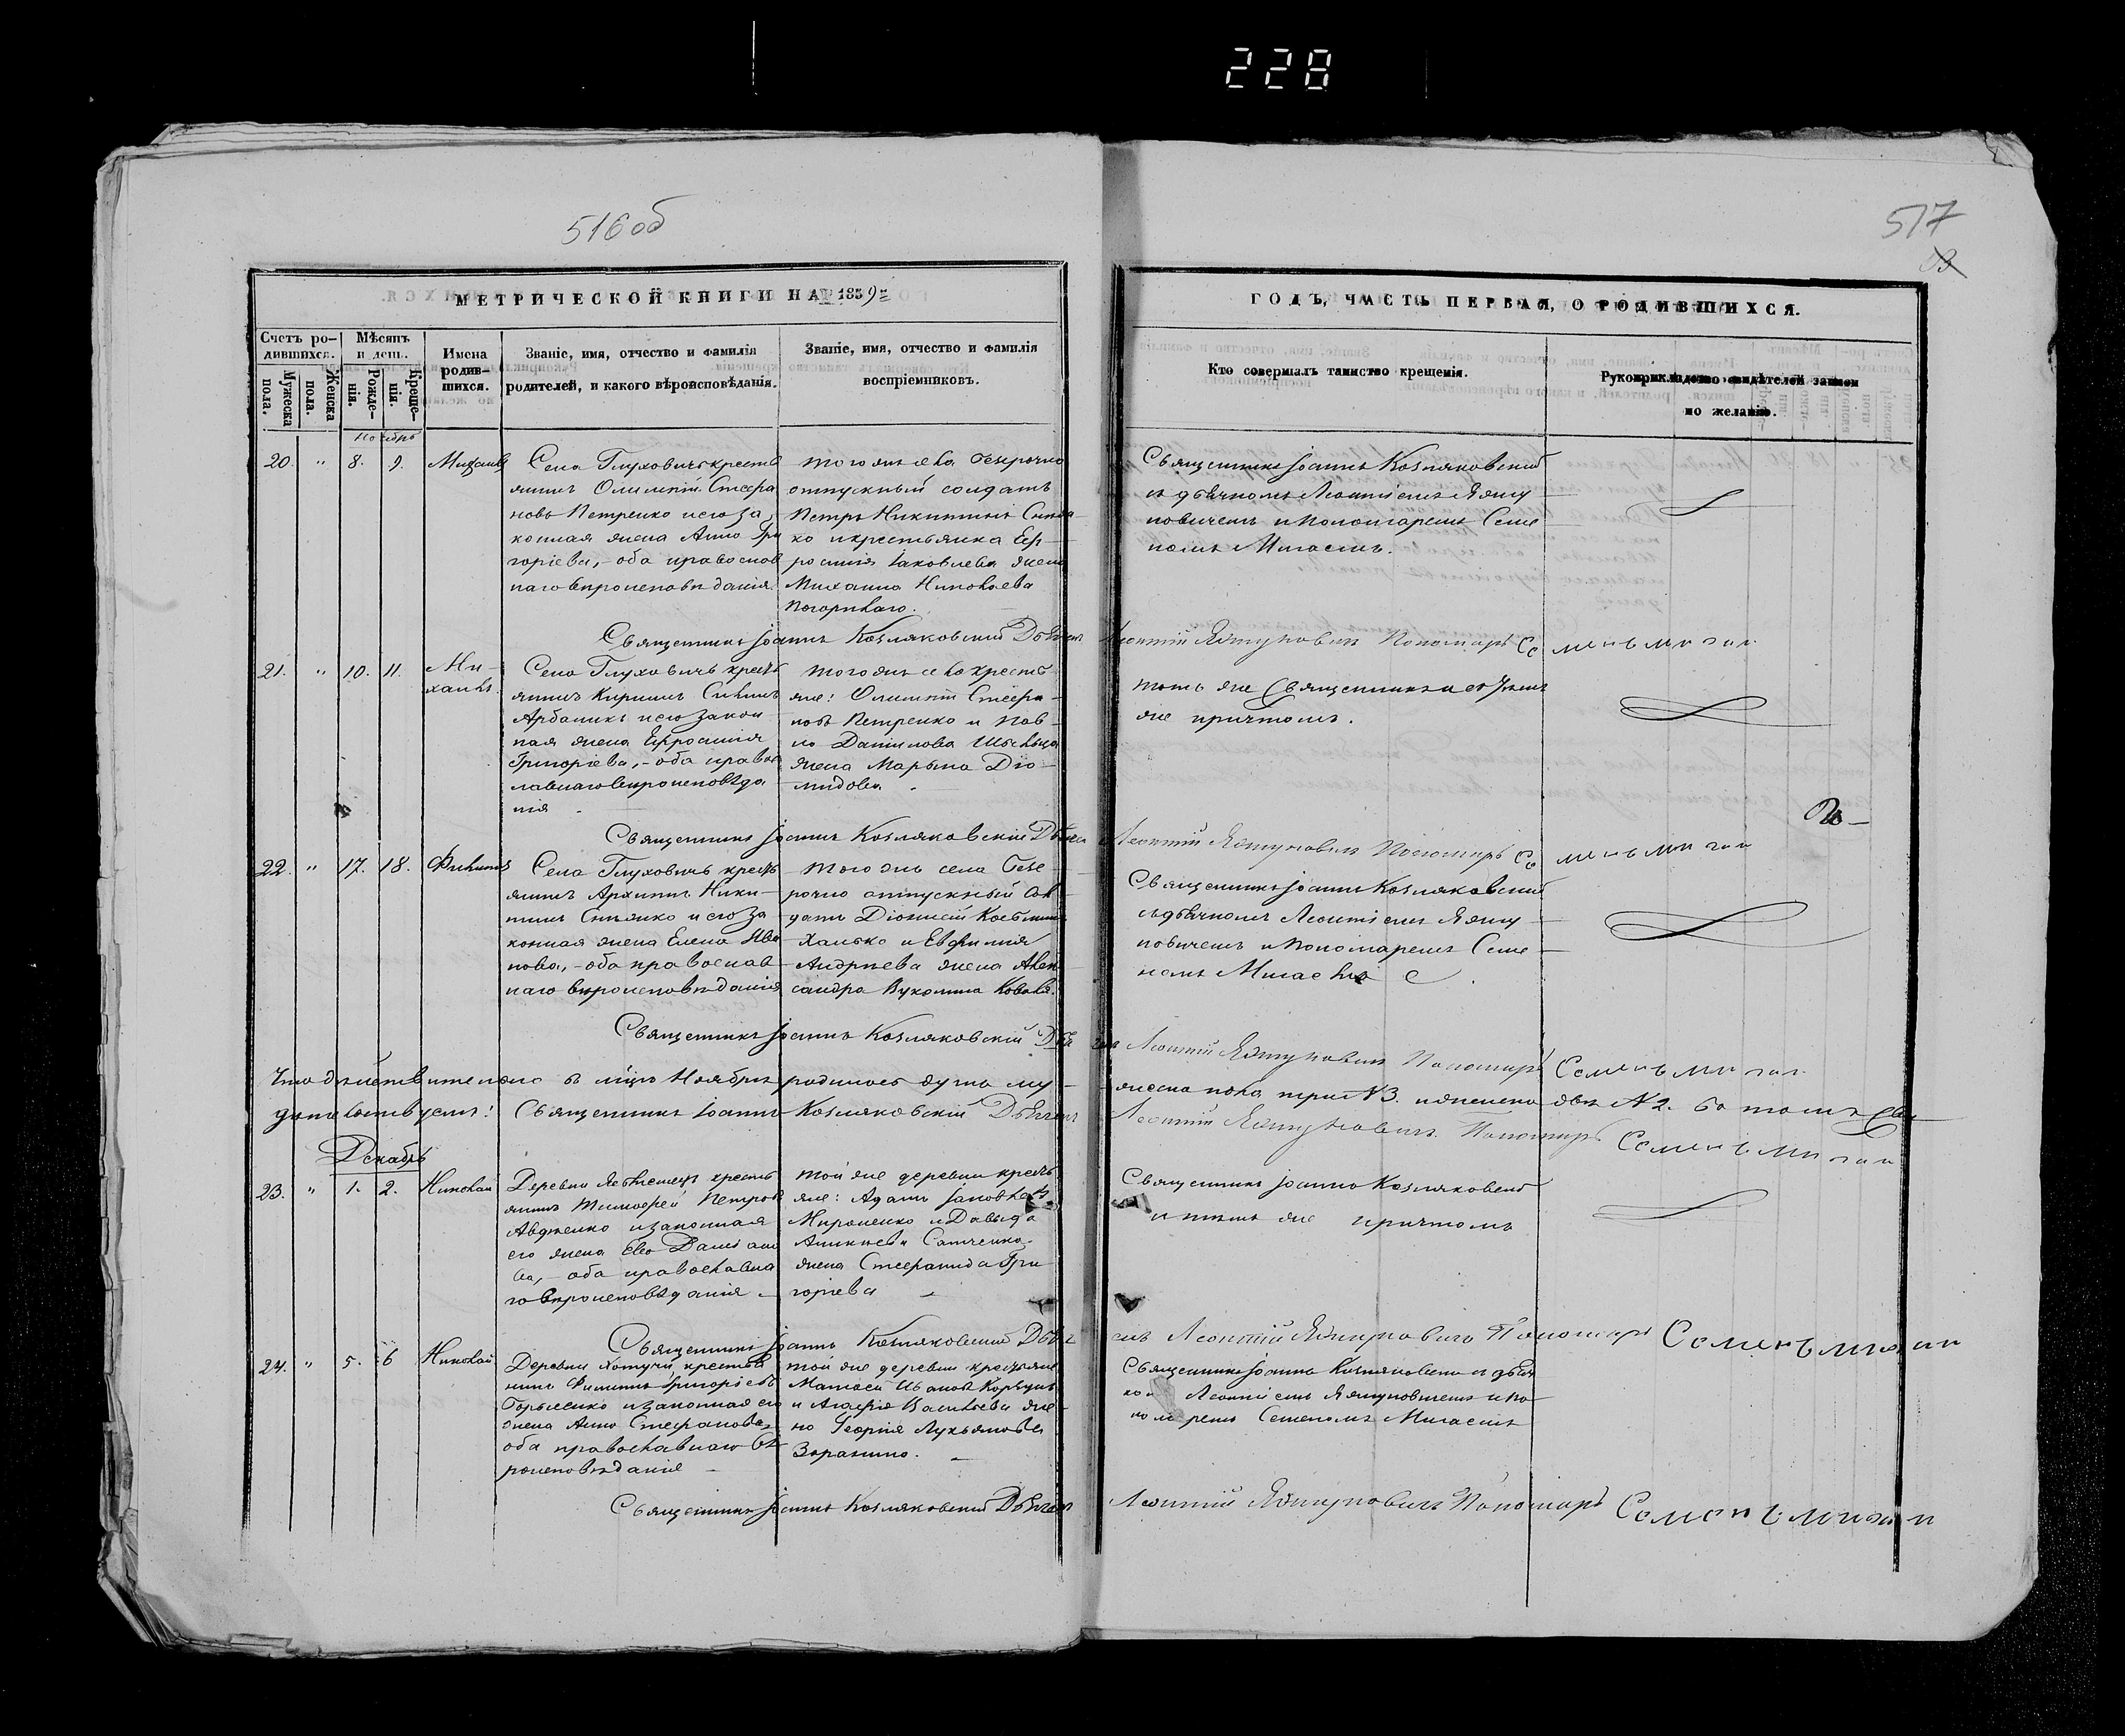 228
516 об
517
МЕТРИЧЕСКОЙ КНИГИ НА 1859й
ГОДЪ, ЧАСТЬ ПЕРВАЯ, О РОДИВШИХСЯ.
Счетъ родившихся.
Мужеска пола.
Женска пола.
Мѣсяцъ и день.
Рожденія.
Крещенія.
Имена родившихся.
Званіе, имя, отчество и фамилія
родителей, и какого вѣроисповѣданія.
Званіе, имя, отчество и фамилія
воспріемниковъ.
Кто совершалъ таинство крещенія.
Рукоприкладство свидѣтелей записи
по желанію.
Ноябрь
20. " 8. 9. Михаилъ
Села Глуховичъ кресть
янинъ Олимпій Стефа
новъ Петренко и его за
конная жена Анна Гри
горіева, - оба православ
наго вѣроисповѣданія.
того же села безсрочно
отпускный солдатъ
Петръ Никитинъ
ко и крестьянка Еф-
росинія Іаковлева жена
Михаила Николаева
Погорѣлаго.
Священникъ Іоаннъ Козляковскій
и дьячкомъ Леонтіемъ Яхму
новичемъ и Пономаремъ Семе
номъ Мигаемъ.
Священникъ Іоаннъ Козляковскій Дьячекъ Леонтій Яхмуновичъ Пономарь Семенъ Мигай
21. " 10. 11. Ми-
хаилъ.
Села Глуховичъ кресть
янинъ Кириллъ
и его закон
ная жена Ефросинія
Григоріева, - оба правос
лавнаго вѣроисповѣда
нія.
того же села кресть
яне: Олимпій Стефа-
новъ Петренко и Пав-
ла Данилова
жена Марына Діо-
мидова.
тотъ же Священникъ и съ тѣмъ
же причтомъ.
Священникъ Іоаннъ Козляковскій Дьячекъ Леонтій Яхмуновичъ Пономарь Семенъ Мигай
22. " 17. 18. Филиппъ
Села Глуховичъ кресть
янинъ Архиппъ Ники-
тинъ и его за
конная жена Елена Ива
нова, - оба православ
наго вѣроисповѣданія
того же села безс
рочно отпускный сол
датъ Діонисій Косьминъ
Халько и Евфимія
Андрѣева жена Алек
сандра Вуколина Коваля.
Священникъ Іоаннъ Козляковскій
съ дьячкомъ Леонтіемъ Яхму
новичемъ и Пономаремъ Семе
номъ Мигаемъ
Священникъ Іоаннъ Козляковскій Дьячекъ Леонтій Яхмуновичъ Пономарь Семенъ Мигай
Что дѣйствительно въ мцѣ Ноябрѣ родилось душъ му-
жеска пола три № 3. и женска двѣ № 2. въ томъ сви
дѣтельствуемъ: Священникъ Іоаннъ Козляковскій Дьячекъ Леонтій Яхмуновичъ. Пономарь Семенъ Мигай
Декабрь
23. " 1. 2. Николай
Деревни кресть
янинъ Тимофей Петровъ
Авдѣенко и законная
его жена Ева
ва, - оба православна
го вѣроисповѣданія
той же деревни кресть
яне: Адамъ Іаковлевъ
Мироненко и Давыда
жена Стефанида Гри
горіева
Священникъ Іоаннъ Козляковскій
и тѣмъ же причтомъ
Священникъ Іоаннъ Козляковскій Дьячекъ Леонтій Яхмуновичъ Пономарь Семенъ Мигай
24. " 5. 6 Николай
Деревни крестья
нинъ Филиппъ Григоріевъ
и законная его
жена Анна Стефанова,
оба православнаго вѣ
роисповѣданія
той же деревни крестьяне
Матвѣй Ивановъ
и Агафія Васильева же
на Георгія Лукьянова
Священникъ Іоаннъ Козляковскій и дьяч
комъ Леонтіемъ Яхмуновичемъ и по
номаремъ Семеномъ Мигаемъ
Священникъ Іоаннъ Козляковскій Дьячекъ Леонтій Яхмуновичъ Пономарь Семенъ Мигай